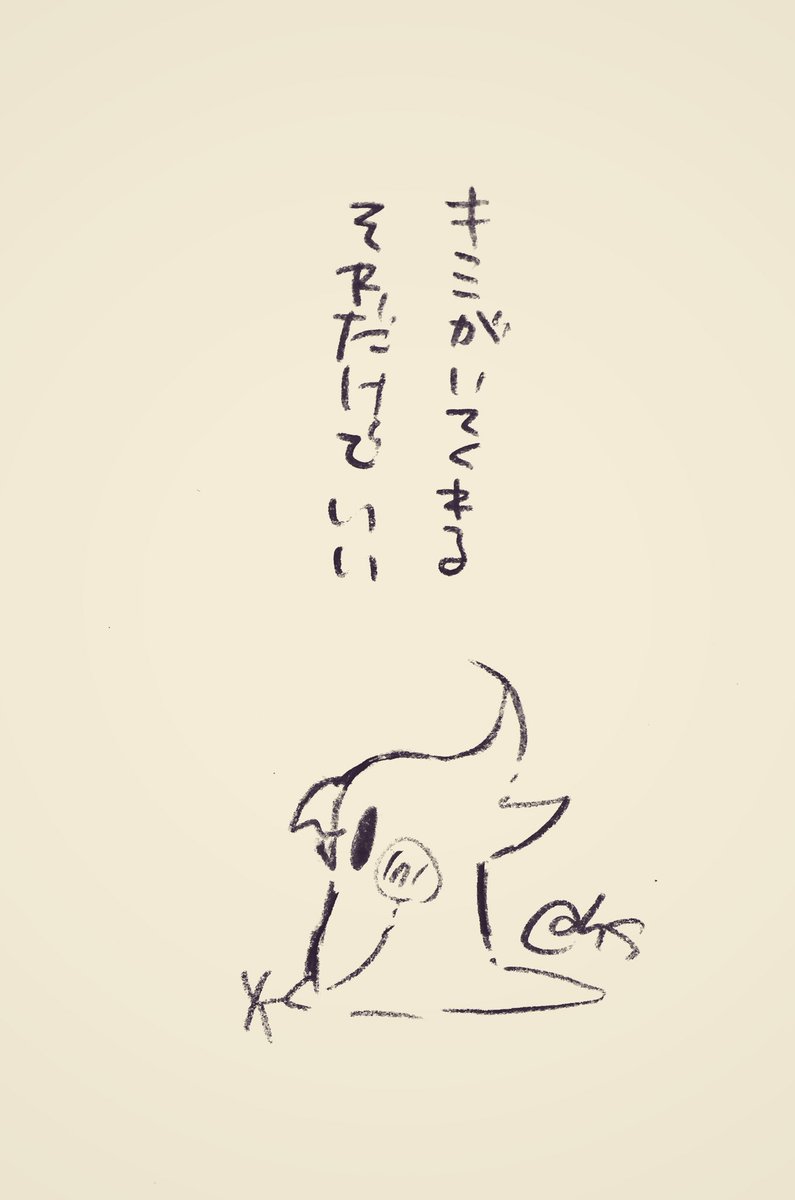 キミがいてくれる
それだけでいい